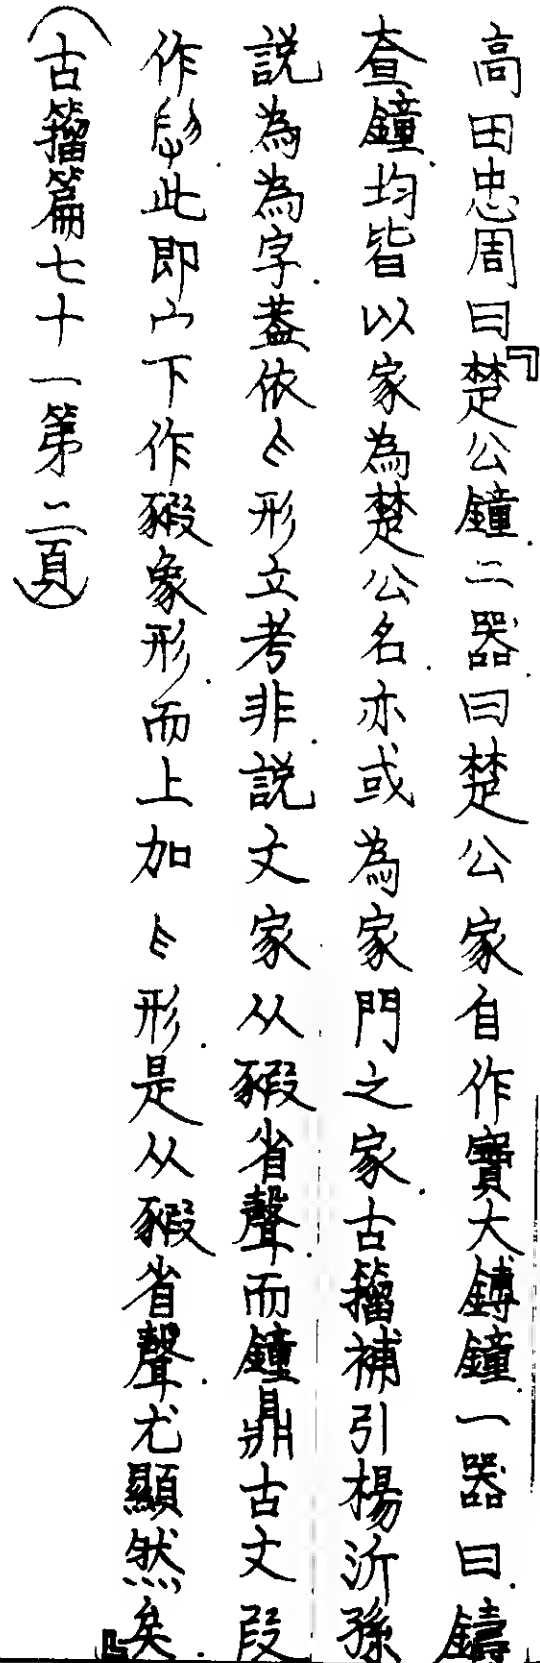 高田忠周曰『楚公鐘．二器．曰楚公家自作寶大鎛鐘．一器曰．鑄
㚊鐘．均皆以家為楚公名．亦或為家門之家．古籀補引楊沂孫
説為為字．蓋依形立考非．説文家．从豭省聲．而鐘鼎古文叚
作．此即宀下作豭象形．而上加形．是从豭省聲．尤顯然矣．』
（古籀篇七十一第二頁）